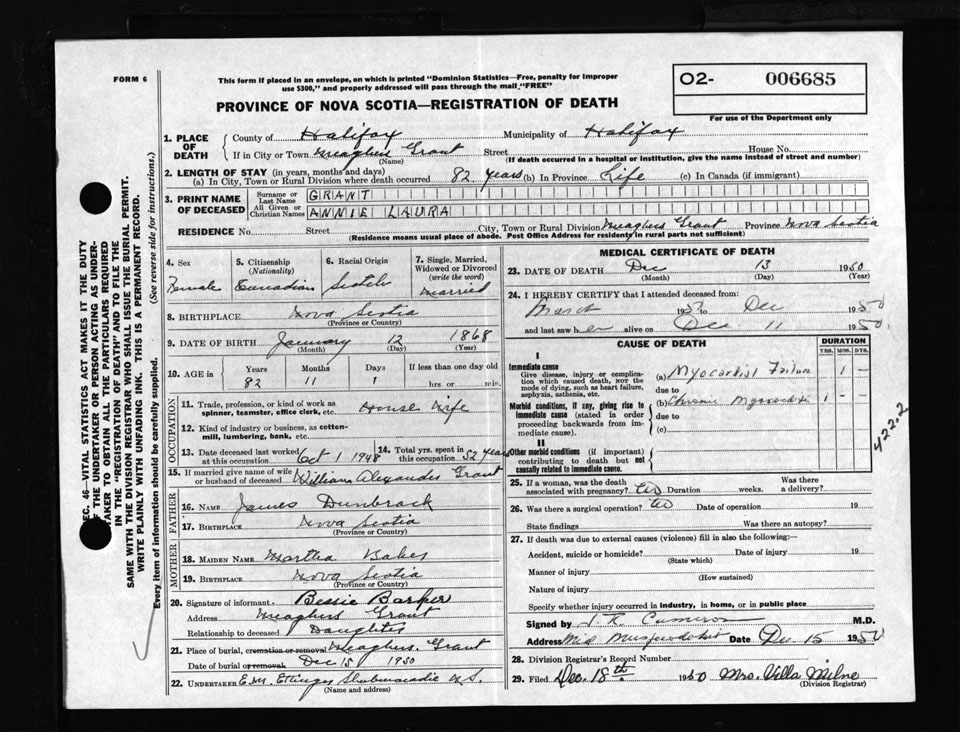 FORM 6
This form if placed in an envelope, on which is printed "Dominion Statistics—Free, penalty for improper
use $300," and properly addressed will pass through the mail "FREE"
O2- 006685
For use of the Department only
PROVINCE OF NOVA SCOTIA—REGISTRATION OF DEATH
1. PLACE OF DEATH County of Halifax Municipality of Halifax
If in City or Town Meaghers Grant Street House No.
(Name) (If death occurred in a hospital or institution, give the name instead of street and number)
2. LENGTH OF STAY (in years, months and days)
(a) In City, Town or Rural Division where death occurred 82 years (b) In Province Life (c) In Canada (if immigrant)
3. PRINT NAME OF DECEASED Surname or Last Name GRANT
All Given or Christian Names ANNIE LAURA
RESIDENCE No. Street City, Town or Rural Division Meaghers Grant Province Nova Scotia
(Residence means usual place of abode. Post Office Address for residents in rural parts not sufficient)
4. Sex Female
5. Citizenship (Nationality) Canadian
6. Racial Origin Scotch
7. Single, Married, Widowed or Divorced (write the word) Married
8. BIRTHPLACE Nova Scotia
(Province or Country)
9. DATE OF BIRTH January 12 1868
(Month) (Day) (Year)
10. AGE in Years Months Days If less than one day old
82 11 1 hrs. or min.
OCCUPATION
11. Trade, profession, or kind of work as spinner, teamster, office clerk, etc. House Wife
12. Kind of industry or business, as cotten-mill, lumbering, bank, etc.
13. Date deceased last worked at this occupation Oct 1 1948
14. Total yrs. spent in this occupation 52 years
15. If married give name of wife or husband of deceased William Alexander Grant
FATHER
16. NAME James Dunbrack
17. BIRTHPLACE Nova Scotia
(Province or Country)
MOTHER
18. MAIDEN NAME Martha
19. BIRTHPLACE Nova Scotia
(Province or Country)
20. Signature of informant Bessie Barker
Address Meaghers Grant
Relationship to deceased Daughter
21. Place of burial, cremation or removal Meaghers Grant
Date of burial or removal Dec 15 1950
22. UNDERTAKER E.M. Ettinger Shubenacadie N.S.
(Name and address)
MEDICAL CERTIFICATE OF DEATH
23. DATE OF DEATH Dec 13 1950
(Month) (Day) (Year)
24. I HEREBY CERTIFY that I attended deceased from:
March 1950 to Dec 1950
and last saw her alive on Dec. 11 1950
CAUSE OF DEATH
DURATION
YRS. MOS. DYS.
I
Immediate cause
Give disease, injury or complication which caused death, NOT the mode of dying, such as heart failure, asphyxia, asthenia, etc.
(a) Myocardial Failure - 1 -
due to
Morbid conditions, if any, giving rise to immediate cause (stated in order proceeding backwards from immediate cause).
(b) Chronic Myocarditis 1 - -
due to
(c)
II
Other morbid conditions (if important) contributing to death but not causally related to immediate cause.
422.2
25. If a woman, was the death associated with pregnancy? No Duration weeks. Was there a delivery?
26. Was there a surgical operation? No Date of operation 19
State findings Was there an autopsy?
27. If death was due to external causes (violence) fill in also the following:
Accident, suicide or homicide? Date of injury 19
(State which)
Manner of injury
(How sustained)
Nature of injury
Specify whether injury occurred in industry, in home, or in public place
Signed by Cameron M.D.
Address Mid Musquodoboit Date Dec 15 1950
28. Division Registrar's Record Number
29. Filed Dec. 18th 1950 Mrs. Villa Milne
(Division Registrar)
SEC. 46—VITAL STATISTICS ACT MAKES IT THE DUTY
OF THE UNDERTAKER OR PERSON ACTING AS UNDER-
TAKER TO OBTAIN ALL THE PARTICULARS REQUIRED
IN THE "REGISTRATION OF DEATH" AND TO FILE THE
SAME WITH THE DIVISION REGISTRAR WHO SHALL ISSUE THE BURIAL PERMIT.
WRITE PLAINLY WITH UNFADING INK. THIS IS A PERMANENT RECORD.
Every item of information should be carefully supplied. (See reverse side for instructions.)